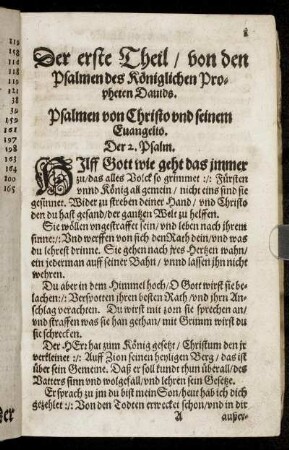 Der erste Theil / von den
Psalmen des Königlichen Pro-
pheten Dauids.
Psalmen von Christo vnd seinem
Euangelio.
Der 2. Psalm.
HIlff Gott wie geht das jmmer
zu/das alles Volck so grimmet :/: Fürsten
vnnd König all gemein / nicht eins sind sie
gesinnet. Wider zu streben deiner Hand / vnd Christo
den du hast gesand/der gantzen Welt zu helffen.
Sie wöllen vngestraffet sein/vnd leben nach ihrem
sinne:/: Vnd werffen von sich den Rath dein/vnd was
du lehrest drinne. Sie gehen nach jres Hertzen wahn/
ein jederman auff seiner Bahn/ vnnd lassen jhn nicht
wehren.
Du aber in dem Himmel hoch/O Gott wirst sie be-
lachen:/: Verspotten ihren besten Rath/vnd jhrn An-
schlag verachten. Du wirst mit zorn sie sprechen an/
vnd straffen was sie han gethan/mit Grimm wirst du
sie schrecken.
Der HErr hat zum König gesetz/ Christum den jr
verkleinet :/: Auff Zion seinen heyligen Berg/ das ist
über sein Gemeine. Daß er soll kundt thun überall/des
Vatters sinn vnd wolgefall/vnd lehren sein Gesetze.
Er sprach zu jm du bist mein Son/heut hab ich dich
gezehlet :/: Von den Todten erwecket schon/vnd in dir
A ausser-
119
158
115
38
32
59
151
197
198
24
100
165